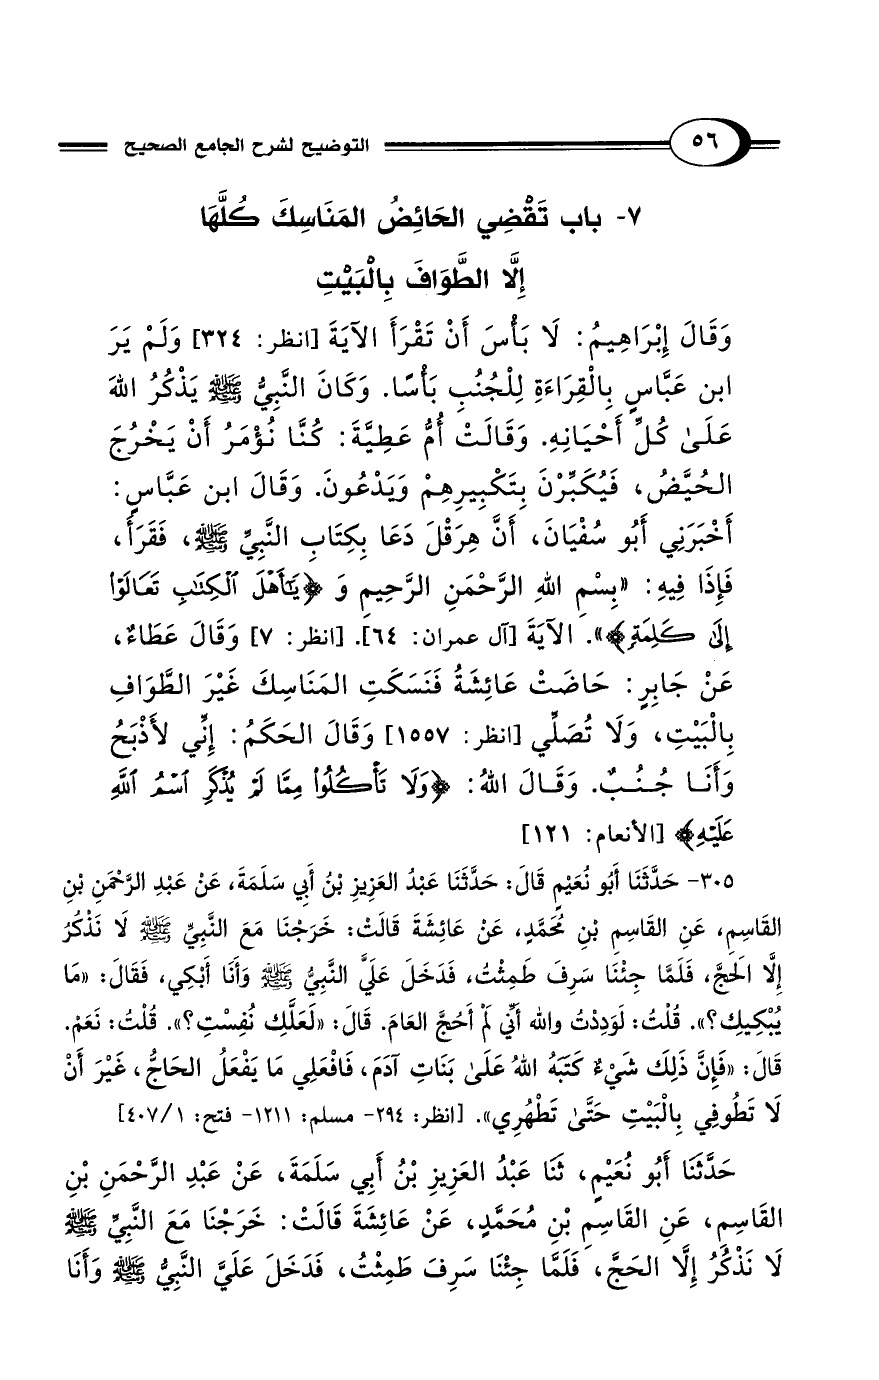 ٥٦ التوضيح لشرح الجامع الصحيح
٧- باب تَقْضِي الحَائِضُ المَنَاسِكَ كُلَّهَا
إِلَّا الطَّوَافَ بِالْبَيْتِ
وَقَالَ إِبْرَاهِيمُ: لَا بَأْسَ أَنْ تَقْرَأَ الآيَةَ [انظر: ٣٢٤] وَلَمْ يَرَ
ابن عَبَّاسٍ بِالْقِرَاءَةِ لِلْجُنُبِ بَأْسًا. وَكَانَ النَّبِيُّ ﷺ يَذْكُرُ اللهَ
عَلَىٰ كُلِّ أَحْيَانِهِ. وَقَالَتْ أُمُّ عَطِيَّةَ: كُنَّا نُؤْمَرُ أَنْ يَخْرُجَ
الحُيَّضُ، فَيُكَبِّرْنَ بِتَكْبِيرِهِمْ وَيَدْعُونَ. وَقَالَ ابن عَبَّاسٍ:
أَخْبَرَنِي أَبُو سُفْيَانَ، أَنَّ هِرَقْلَ دَعَا بِكِتَابِ النَّبِيِّ ﷺ، فَقَرَأَ،
فَإِذَا فِيهِ: «بِسْمِ اللهِ الرَّحْمَنِ الرَّحِيمِ وَ ﴿يَٰٓأَهْلَ ٱلْكِتَٰبِ تَعَالَوْا۟
إِلَىٰ كَلِمَةٍ﴾». الآيَةَ [آل عمران: ٦٤]. [انظر: ٧] وَقَالَ عَطَاءٌ،
عَنْ جَابِرٍ: حَاضَتْ عَائِشَةُ فَنَسَكَتِ المَنَاسِكَ غَيْرَ الطَّوَافِ
بِالْبَيْتِ، وَلَا تُصَلِّي [انظر: ١٥٥٧] وَقَالَ الحَكَمُ: إِنِّي لأَذْبَحُ
وَأَنَا جُنُبٌ. وَقَالَ اللهُ: ﴿وَلَا تَأْكُلُوا۟ مِمَّا لَمْ يُذْكَرِ ٱسْمُ ٱللَّهِ
عَلَيْهِ﴾ [الأنعام: ١٢١]
٣٠٥- حَدَّثَنَا أَبُو نُعَيْمٍ قَالَ: حَدَّثَنَا عَبْدُ العَزِيزِ بْنُ أَبِي سَلَمَةَ، عَنْ عَبْدِ الرَّحْمَنِ بْنِ
القَاسِمِ، عَنِ القَاسِمِ بْنِ مُحَمَّدٍ، عَنْ عَائِشَةَ قَالَتْ: خَرَجْنَا مَعَ النَّبِيِّ ﷺ لَا نَذْكُرُ
إِلَّا الحَجَّ، فَلَمَّا جِئْنَا سَرِفَ طَمِثْتُ، فَدَخَلَ عَلَيَّ النَّبِيُّ ﷺ وَأَنَا أَبْكِي، فَقَالَ: «مَا
يُبْكِيكِ؟». قُلْتُ: لَوَدِدْتُ والله أَنِّي لَمْ أَحُجَّ العَامَ. قَالَ: «لَعَلَّكِ نُفِسْتِ؟». قُلْتُ: نَعَمْ.
قَالَ: «فَإِنَّ ذَلِكَ شَيْءٌ كَتَبَهُ اللهُ عَلَىٰ بَنَاتِ آدَمَ، فَافْعَلِي مَا يَفْعَلُ الحَاجُّ، غَيْرَ أَنْ
لَا تَطُوفِي بِالْبَيْتِ حَتَّىٰ تَطْهُرِي». [انظر: ٢٩٤- مسلم: ١٢١١- فتح: ١/٤٠٧]
حَدَّثَنَا أَبُو نُعَيْمٍ، ثَنَا عَبْدُ العَزِيزِ بْنُ أَبِي سَلَمَةَ، عَنْ عَبْدِ الرَّحْمَنِ بْنِ
القَاسِمِ، عَنِ القَاسِمِ بْنِ مُحَمَّدٍ، عَنْ عَائِشَةَ قَالَتْ: خَرَجْنَا مَعَ النَّبِيِّ ﷺ
لَا نَذْكُرُ إِلَّا الحَجَّ، فَلَمَّا جِئْنَا سَرِفَ طَمِثْتُ، فَدَخَلَ عَلَيَّ النَّبِيُّ ﷺ وَأَنَا